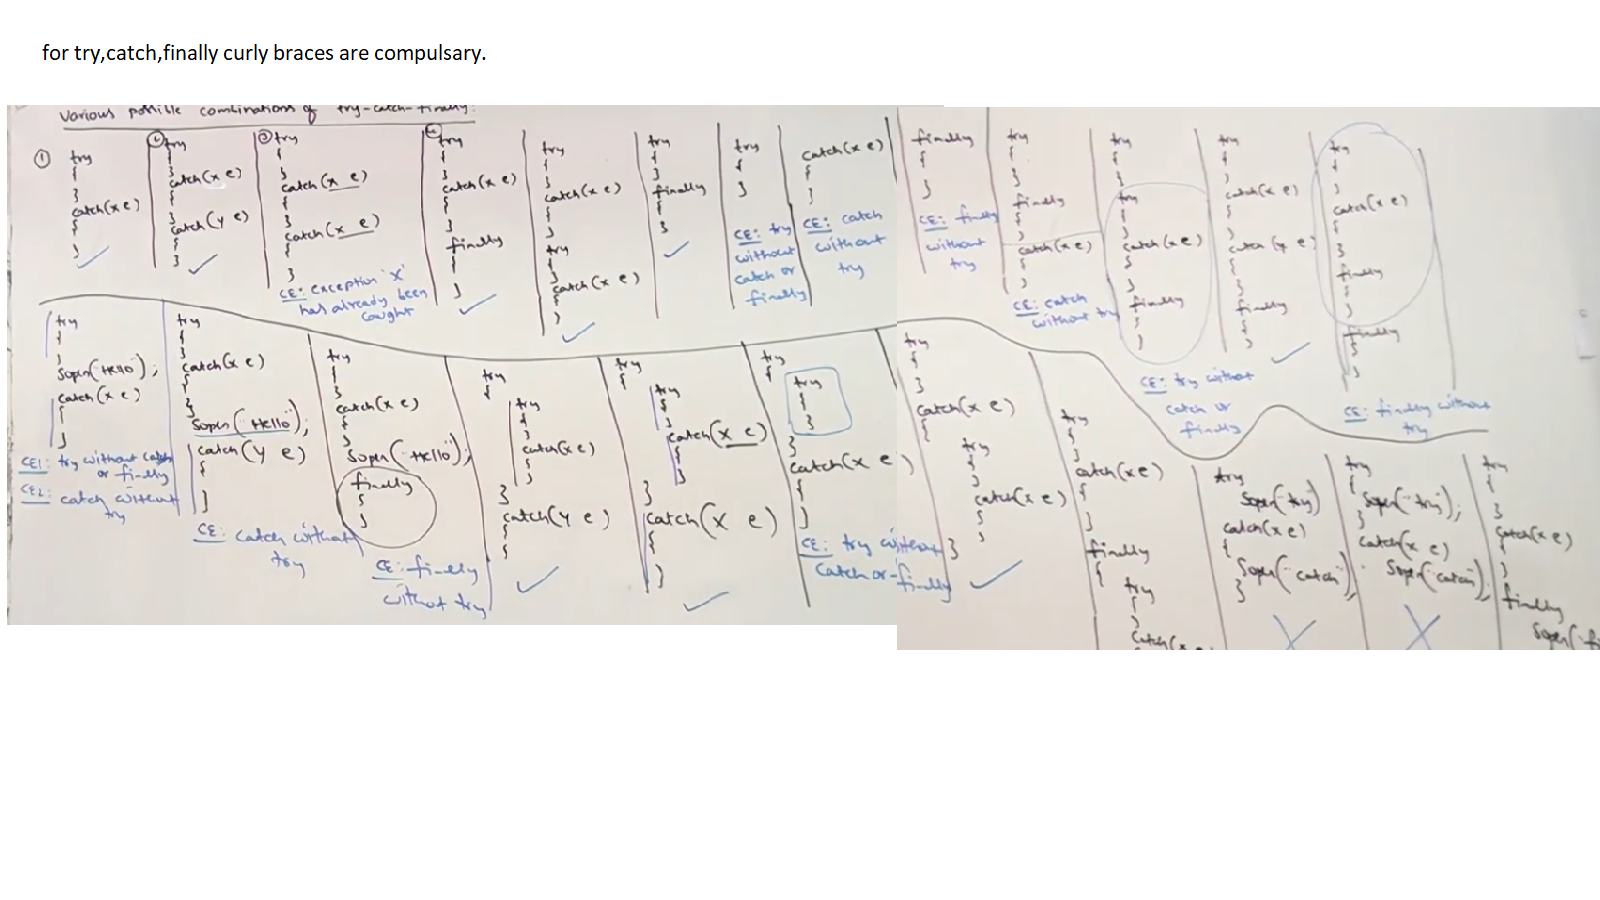 for try,catch,finally curly braces are compulsary.
Various possible combinations of try-catch-finally:
①
try
{
}
catch(x e)
{
}
②
try
{
}
catch(x e)
{
}
catch(y e)
{
}
③
try
{
}
catch(x e)
{
}
catch(x e)
{
}
CE: exception 'x'
has already been
caught
④
try
{
}
catch(x e)
{
}
finally
{
}
try
{
}
catch(x e)
{
}
try
{
}
catch(x e)
{
}
try
{
}
finally
{
}
try
{
}
CE: try
without
catch or
finally
catch(x e)
{
}
CE: catch
without
try
finally
{
}
CE: finally
without
try
try
{
}
finally
{
}
catch(x e)
{
}
CE: catch
without try
try
{
}
try
{
}
catch(x e)
{
}
finally
{
}
CE: try without
catch or
finally
try
{
}
catch(x e)
{
}
catch(y e)
{
}
finally
{
}
try
{
}
catch(x e)
{
}
finally
{
}
finally
{
}
CE: finally without
try
try
{
}
Sopln("Hello");
catch(x e)
{
}
CE1: try without catch
or finally
CE2: catch without
try
try
{
}
catch(x e)
{
}
Sopln("Hello");
catch(y e)
{
}
CE: catch without
try
try
{
}
catch(x e)
{
}
Sopln("Hello");
finally
{
}
CE: finally
without try
try
{
try
{
}
catch(x e)
{
}
}
catch(y e)
{
}
try
{
try
{
}
catch(x e)
{
}
}
catch(x e)
{
}
try
{
try
{
}
}
catch(x e)
{
}
CE: try without
catch or finally
try
{
}
catch(x e)
{
try
{
}
catch(x e)
{
}
}
try
{
}
catch(x e)
{
}
finally
{
try
{
}
catch(x
try
Sopln("try")
catch(x e)
{
Sopln("catch");
}
try
{
Sopln("try");
}
catch(x e)
Sopln("catch");
try
{
}
catch(x e)
{
}
finally
Sopln("f